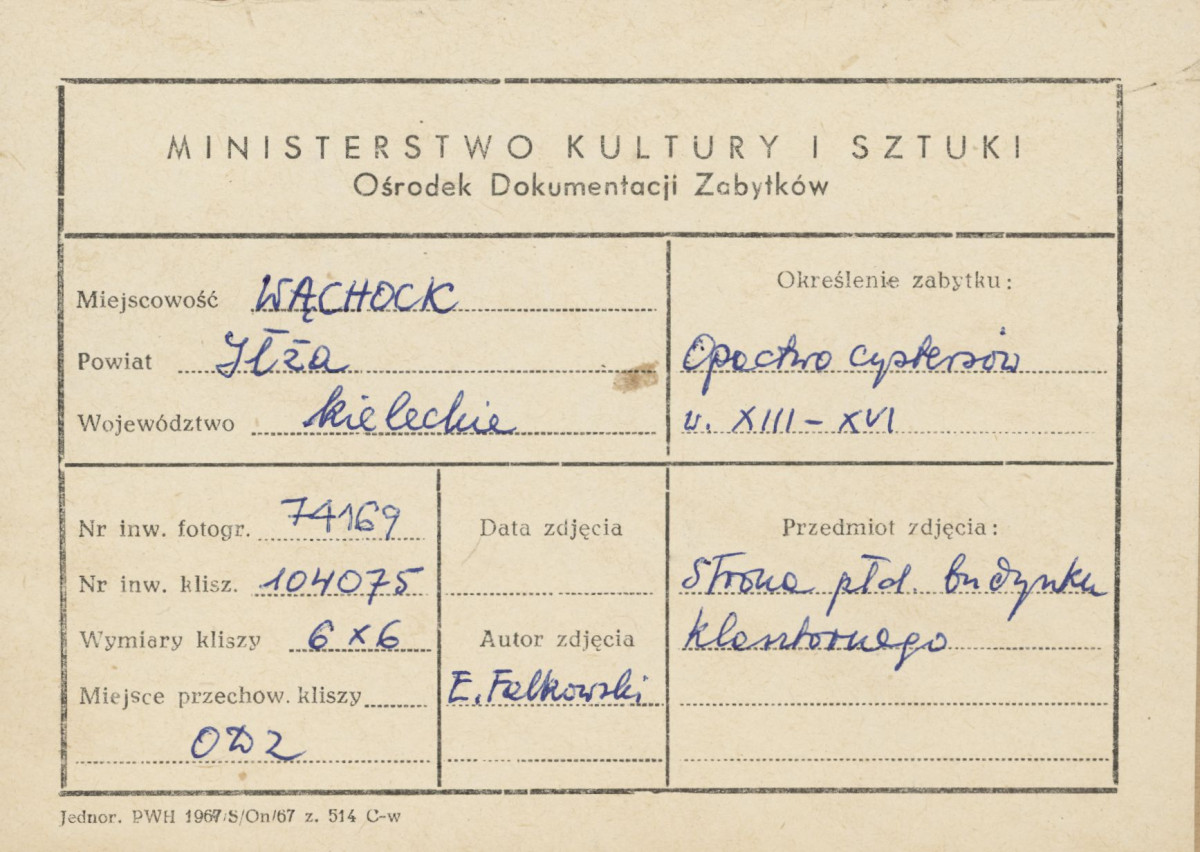 MINISTERSTWO KULTURY I SZTUKI
Ośrodek Dokumentacji Zabytków
Miejscowość WĄCHOCK
Powiat Iłża
Województwo kieleckie
Określenie zabytku:
Opactwo cystersów
w. XIII – XVI
Nr inw. fotogr. 74169
Nr inw. klisz. 104075
Wymiary kliszy 6 x 6
Miejsce przechow. kliszy
ODZ
Data zdjęcia
Autor zdjęcia
E. Falkowski
Przedmiot zdjęcia:
Strona płd. budynku
klasztornego
Jednor. PWH 1967/S/On/67 z. 514 C-w